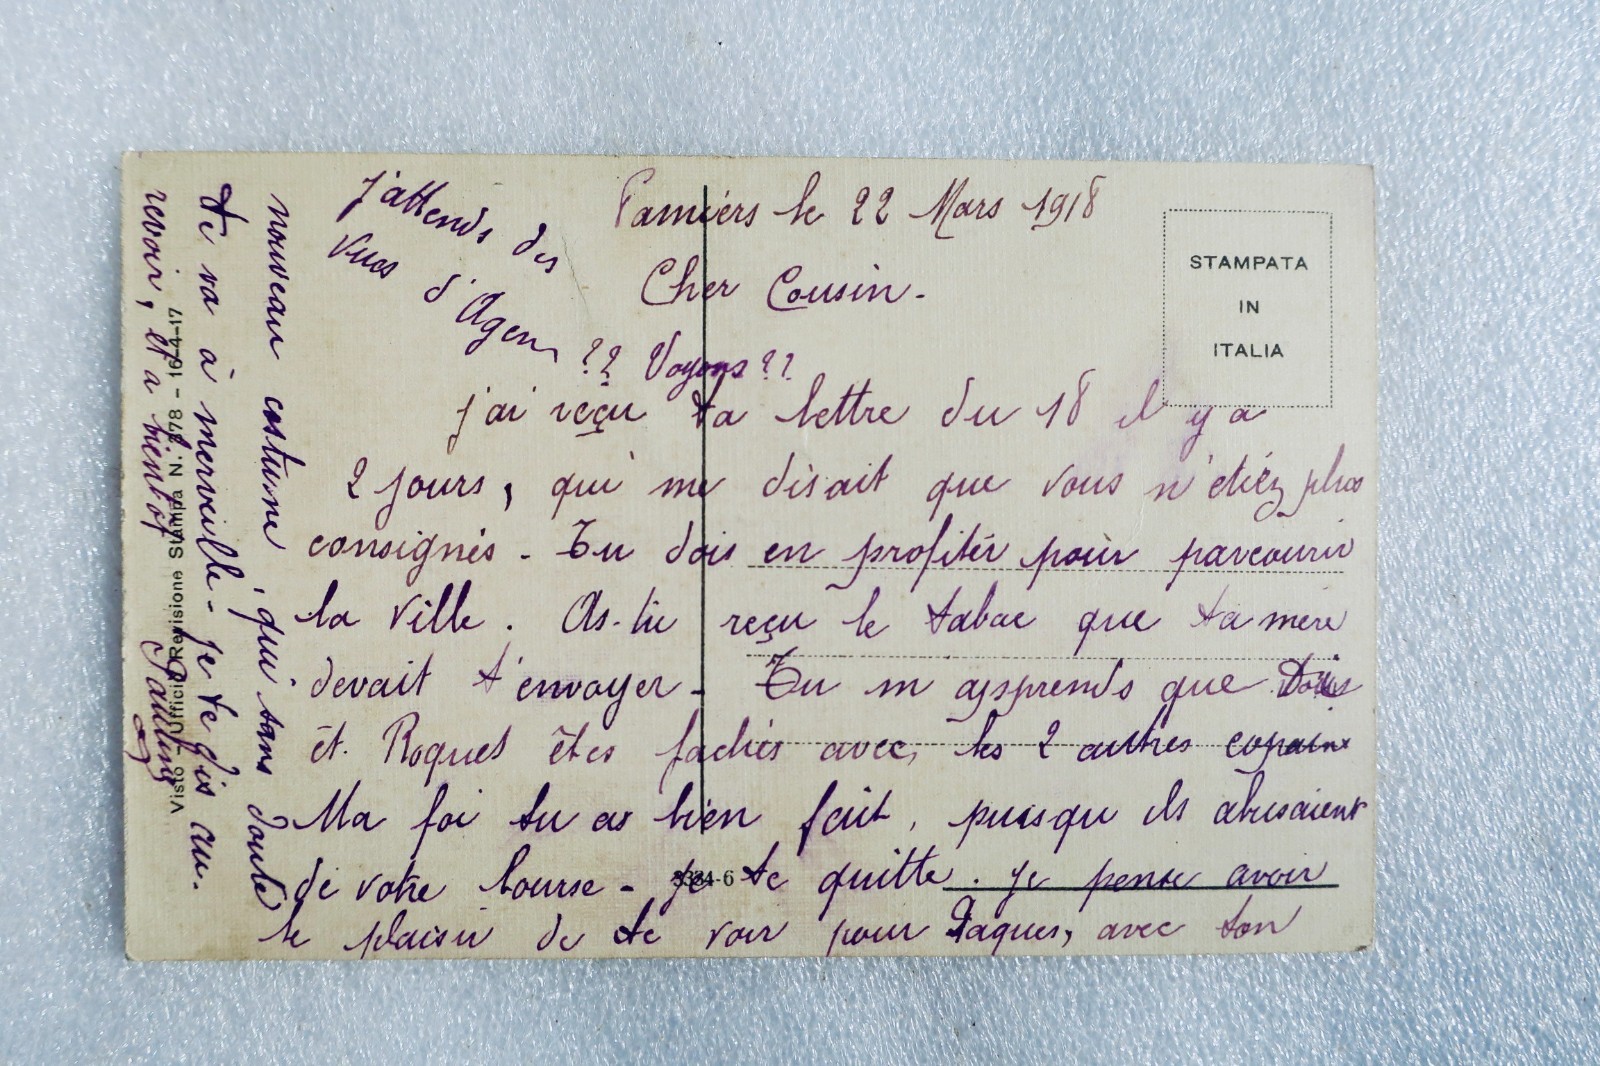 Pamiers le 22 Mars 1918
Cher Cousin -
j'ai reçu ta lettre du 18 il y a
2 jours, qui me disait que vous n'étiéz plus
consignés - Tu dois en profiter pour parcourir
la Ville. As-tu reçu le tabac que ta mère
devait t'envoyer - Tu m'apprends que
et Roques êtes fachés avec, les 2 autres copains
Ma foi tu as bien fait, puisqu'ils abusaient
de votre bourse - je te quitte. je pense avoir
le plaisir de te voir pour Paques, avec ton
nouveau costume, qui sans doute
te va à merveille - je te dis au.
revoir, et a bientot
Pauline
J'attends des
vues d'
Agen ?? Voyons ??
STAMPATA
IN
ITALIA
Visto - Ufficio Revisione Stampa N. 378 - 16-4-17